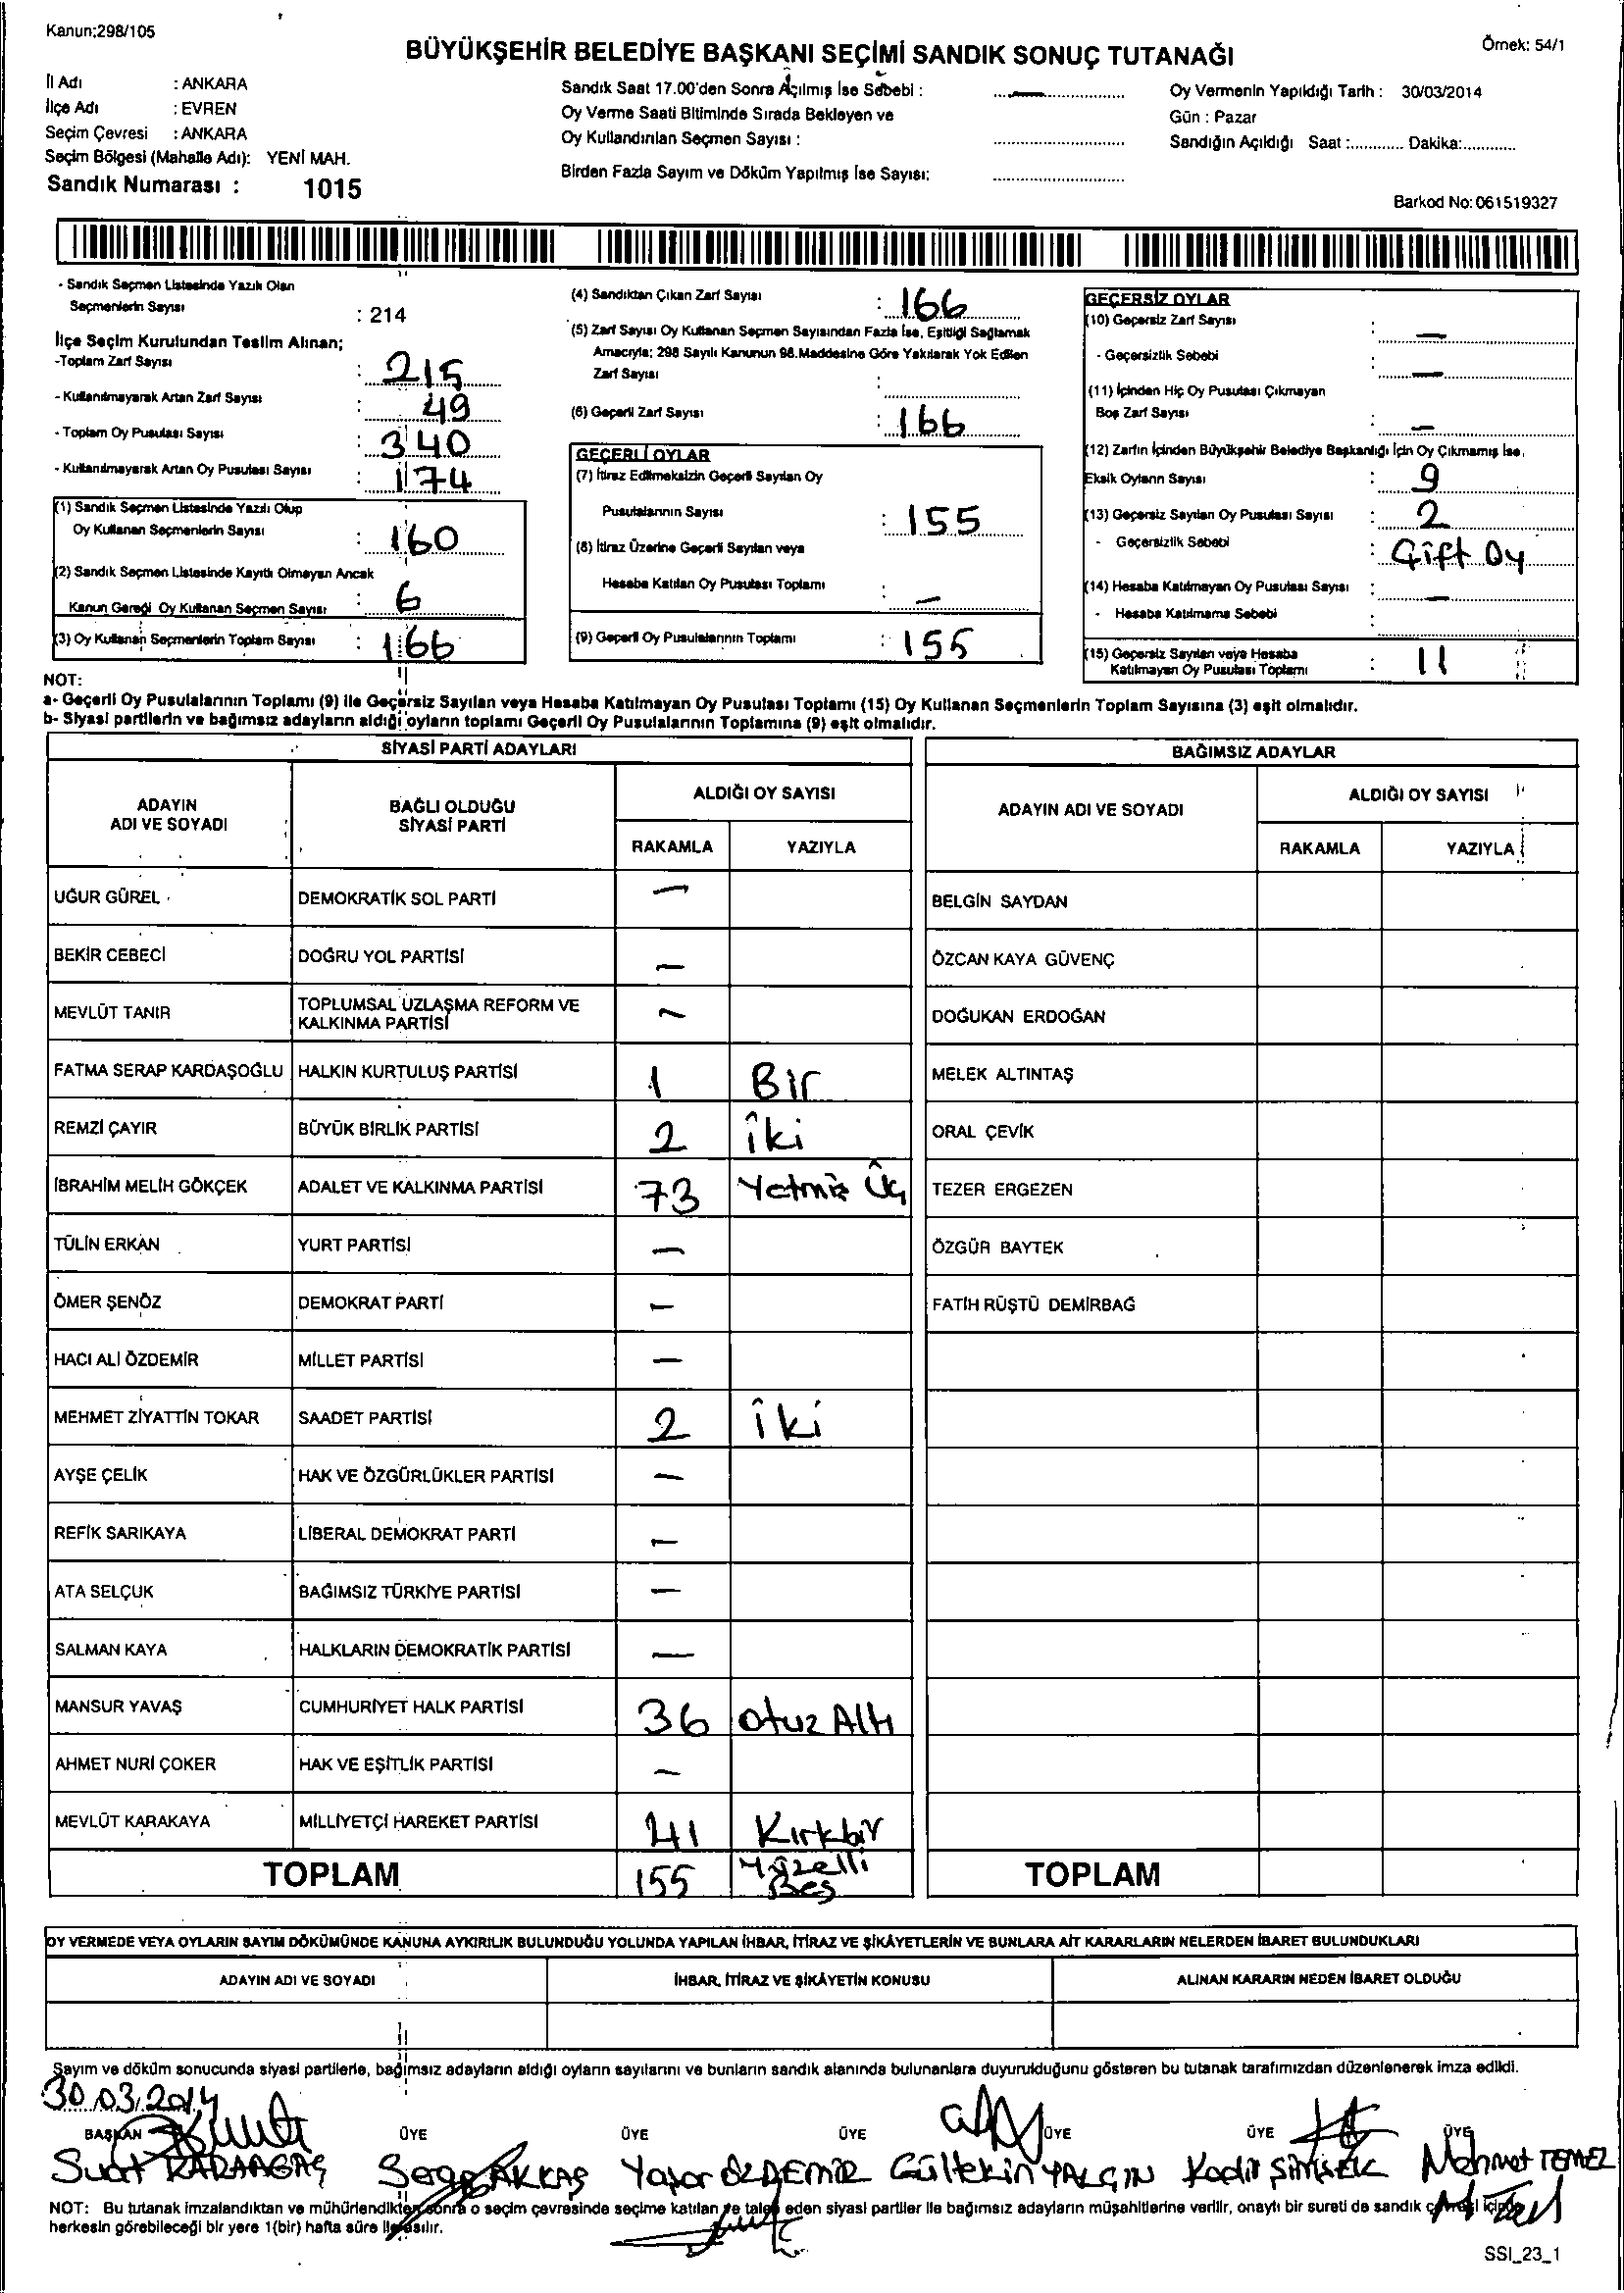 Kanun:298/105
Örnek: 54/1
BÜYÜKŞEHİR BELEDİYE BAŞKANI SEÇİMİ SANDIK SONUÇ TUTANAĞI
İl Adı : ANKARA
İlçe Adı : EVREN
Seçim Çevresi : ANKARA
Seçim Bölgesi (Mahalle Adı): YENİ MAH.
Sandık Numarası : 1015
Sandık Saat 17.00'den Sonra Açılmış İse Sebebi : —
Oy Verme Saati Bitiminde Sırada Bekleyen ve
Oy Kullandırılan Seçmen Sayısı :
Birden Fazla Sayım ve Döküm Yapılmış İse Sayısı:
Oy Vermenin Yapıldığı Tarih : 30/03/2014
Gün : Pazar
Sandığın Açıldığı Saat :............ Dakika:............
Barkod No: 061519327
- Sandık Seçmen Listesinde Yazılı Olan
Seçmenlerin Sayısı : 214
İlçe Seçim Kurulundan Teslim Alınan;
-Toplam Zarf Sayısı : 215
- Kullanılmayarak Artan Zarf Sayısı : 49
- Toplam Oy Pusulası Sayısı : 340
- Kullanılmayarak Artan Oy Pusulası Sayısı : 174
(1) Sandık Seçmen Listesinde Yazılı Olup
Oy Kullanan Seçmenlerin Sayısı : 160
(2) Sandık Seçmen Listesinde Kayıtlı Olmayan Ancak
Kanun Gereği Oy Kullanan Seçmen Sayısı : 6
(3) Oy Kullanan Seçmenlerin Toplam Sayısı : 166
(4) Sandıktan Çıkan Zarf Sayısı : 166
(5) Zarf Sayısı Oy Kullanan Seçmen Sayısından Fazla İse, Eşitliği Sağlamak
Amacıyla; 298 Sayılı Kanunun 98.Maddesine Göre Yakılarak Yok Edilen
Zarf Sayısı :
(6) Geçerli Zarf Sayısı : 166
GEÇERLİ OYLAR
(7) İtiraz Edilmeksizin Geçerli Sayılan Oy
Pusulalarının Sayısı : 155
(8) İtiraz Üzerine Geçerli Sayılan veya
Hesaba Katılan Oy Pusulası Toplamı : —
(9) Geçerli Oy Pusulalarının Toplamı : 155
GEÇERSİZ OYLAR
(10) Geçersiz Zarf Sayısı : —
- Geçersizlik Sebebi : —
(11) İçinden Hiç Oy Pusulası Çıkmayan
Boş Zarf Sayısı : —
(12) Zarfın İçinden Büyükşehir Belediye Başkanlığı İçin Oy Çıkmamış İse,
Eksik Oyların Sayısı : 9
(13) Geçersiz Sayılan Oy Pusulası Sayısı : 2
- Geçersizlik Sebebi : Çift Oy
(14) Hesaba Katılmayan Oy Pusulası Sayısı : —
- Hesaba Katılmama Sebebi :
(15) Geçersiz Sayılan veya Hesaba
Katılmayan Oy Pusulası Toplamı : 11
NOT:
a- Geçerli Oy Pusulalarının Toplamı (9) ile Geçersiz Sayılan veya Hesaba Katılmayan Oy Pusulası Toplamı (15) Oy Kullanan Seçmenlerin Toplam Sayısına (3) eşit olmalıdır.
b- Siyasi partilerin ve bağımsız adayların aldığı oyların toplamı Geçerli Oy Pusulalarının Toplamına (9) eşit olmalıdır.
SİYASİ PARTİ ADAYLARI
ADAYIN ADI VE SOYADI
BAĞLI OLDUĞU SİYASİ PARTİ
ALDIĞI OY SAYISI
RAKAMLA YAZIYLA
UĞUR GÜREL DEMOKRATİK SOL PARTİ —
BEKİR CEBECİ DOĞRU YOL PARTİSİ —
MEVLÜT TANIR TOPLUMSAL UZLAŞMA REFORM VE KALKINMA PARTİSİ —
FATMA SERAP KARDAŞOĞLU HALKIN KURTULUŞ PARTİSİ 1 Bir
REMZİ ÇAYIR BÜYÜK BİRLİK PARTİSİ 2 iki
İBRAHİM MELİH GÖKÇEK ADALET VE KALKINMA PARTİSİ 73 Yetmiş Üç
TÜLİN ERKAN YURT PARTİSİ —
ÖMER ŞENÖZ DEMOKRAT PARTİ —
HACI ALİ ÖZDEMİR MİLLET PARTİSİ —
MEHMET ZİYATTİN TOKAR SAADET PARTİSİ 2 iki
AYŞE ÇELİK HAK VE ÖZGÜRLÜKLER PARTİSİ —
REFİK SARIKAYA LİBERAL DEMOKRAT PARTİ —
ATA SELÇUK BAĞIMSIZ TÜRKİYE PARTİSİ —
SALMAN KAYA HALKLARIN DEMOKRATİK PARTİSİ —
MANSUR YAVAŞ CUMHURİYET HALK PARTİSİ 36 otuz Altı
AHMET NURİ ÇOKER HAK VE EŞİTLİK PARTİSİ —
MEVLÜT KARAKAYA MİLLİYETÇİ HAREKET PARTİSİ 41 Kırkbir
TOPLAM 155 Yüzelli Beş
BAĞIMSIZ ADAYLAR
ADAYIN ADI VE SOYADI
ALDIĞI OY SAYISI
RAKAMLA YAZIYLA
BELGİN SAYDAN
ÖZCAN KAYA GÜVENÇ
DOĞUKAN ERDOĞAN
MELEK ALTINTAŞ
ORAL ÇEVİK
TEZER ERGEZEN
ÖZGÜR BAYTEK
FATİH RÜŞTÜ DEMİRBAĞ
TOPLAM
OY VERMEDE VEYA OYLARIN SAYIM DÖKÜMÜNDE KANUNA AYKIRILIK BULUNDUĞU YOLUNDA YAPILAN İHBAR, İTİRAZ VE ŞİKÂYETLERİN VE BUNLARA AİT KARARLARIN NELERDEN İBARET BULUNDUKLARI
ADAYIN ADI VE SOYADI
İHBAR, İTİRAZ VE ŞİKÂYETİN KONUSU
ALINAN KARARIN NEDEN İBARET OLDUĞU
Sayım ve döküm sonucunda siyasi partilerle, bağımsız adayların aldığı oyların sayılarını ve bunların sandık alanında bulunanlara duyurulduğunu gösteren bu tutanak tarafımızdan düzenlenerek imza edildi.
30.03.2014
BAŞKAN ÜYE ÜYE ÜYE ÜYE ÜYE ÜYE
Suat KARAAĞAÇ AKKAŞ Yaşar ÖZDEMİR Gültekin YALÇIN Kadir ŞİMŞEK Mehmet TEMEL
NOT: Bu tutanak imzalandıktan ve mühürlendikten sonra o seçim çevresinde seçime katılan ve talep eden siyasi partiler ile bağımsız adayların müşahitlerine verilir, onaylı bir sureti de sandık çevresi içinde
herkesin görebileceği bir yere 1(bir) hafta süre ile asılır.
SSI_23_1